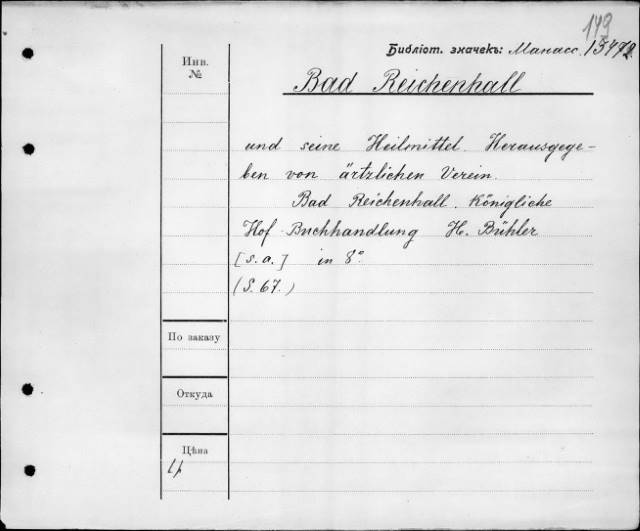 149
Библіот. значекъ: Манасс. 13472
Инв. №
Bad Reichenhall
und seine Heilmittel. Herausgege-
ben von ärtzlichen Verein.
Bad Reichenhall. Königliche
Hof-Buchhandlung H. Bühler
[s. a.] in 8°
(S. 67.)
По заказу
Откуда
Цѣна